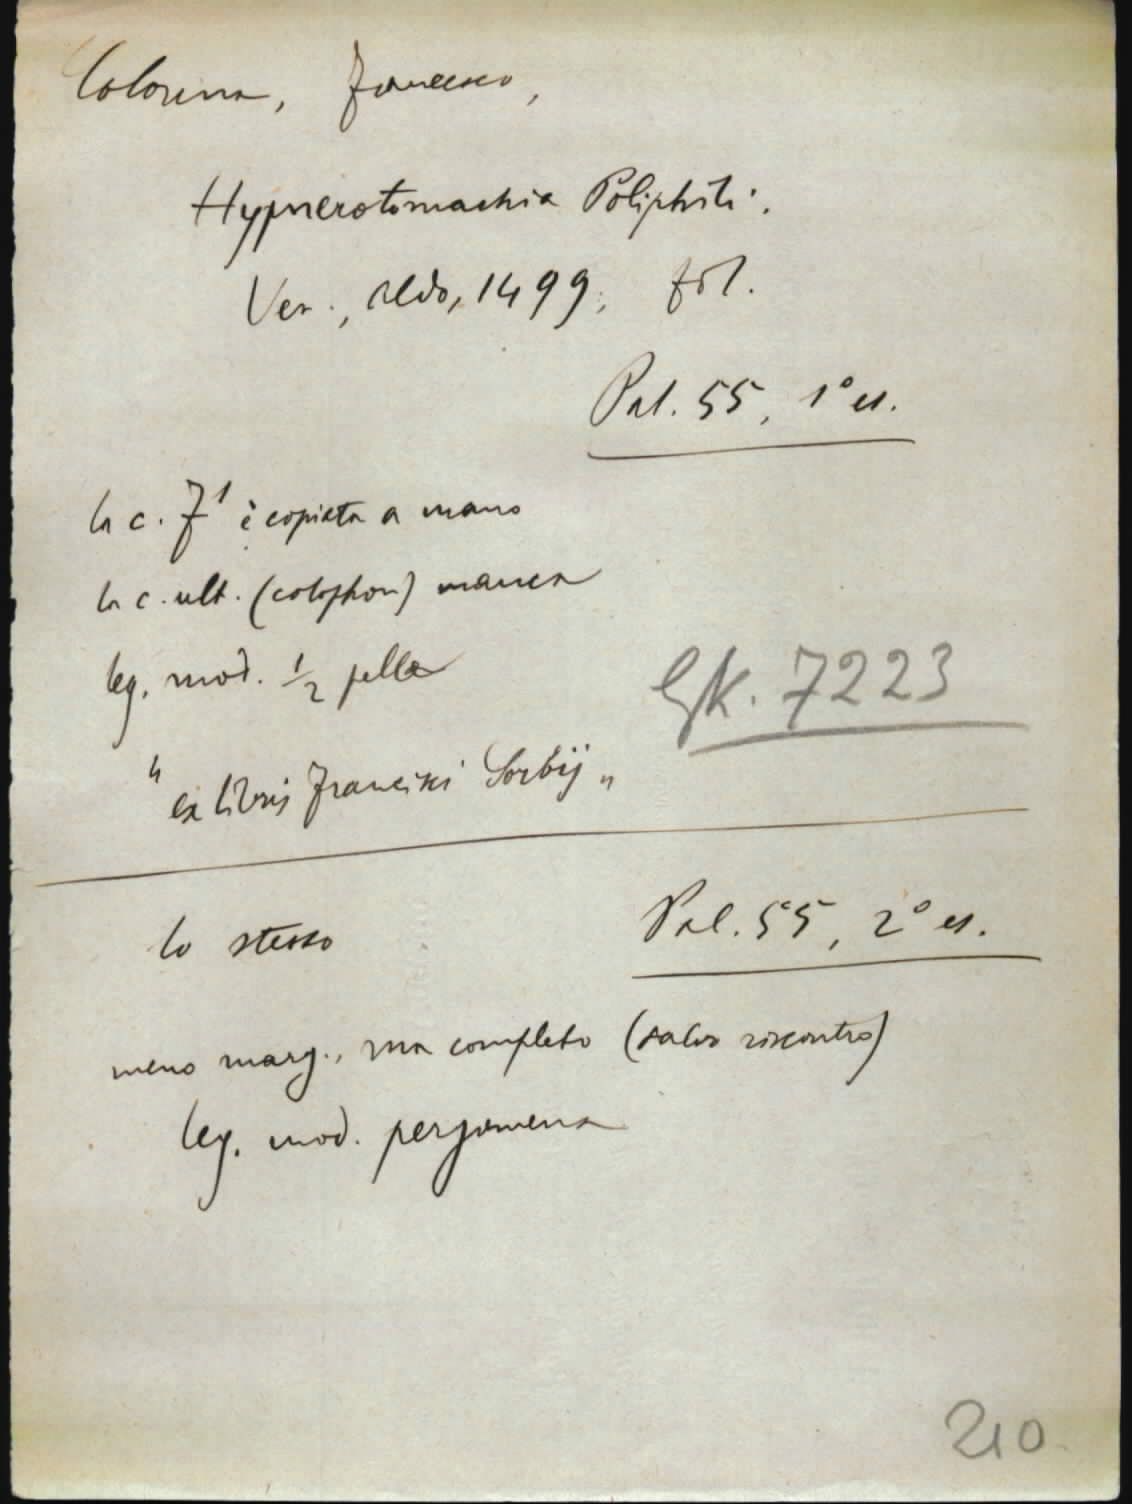 Colonna, Francesco,
Hypnerotomachia Poliphili.
Ven., Aldo, 1499, fol.
Pal. 55, 1° es.
la c. 7¹ è copiata a mano
la c. ult. (colophon) manca
leg. mod. 1/2 pelle
Gk. 7223
"ex libris Francisci Sorbij"
lo stesso
Pal. 55, 2° es.
meno marg., ma completo (salvo riscontro)
leg. mod. pergamena
210